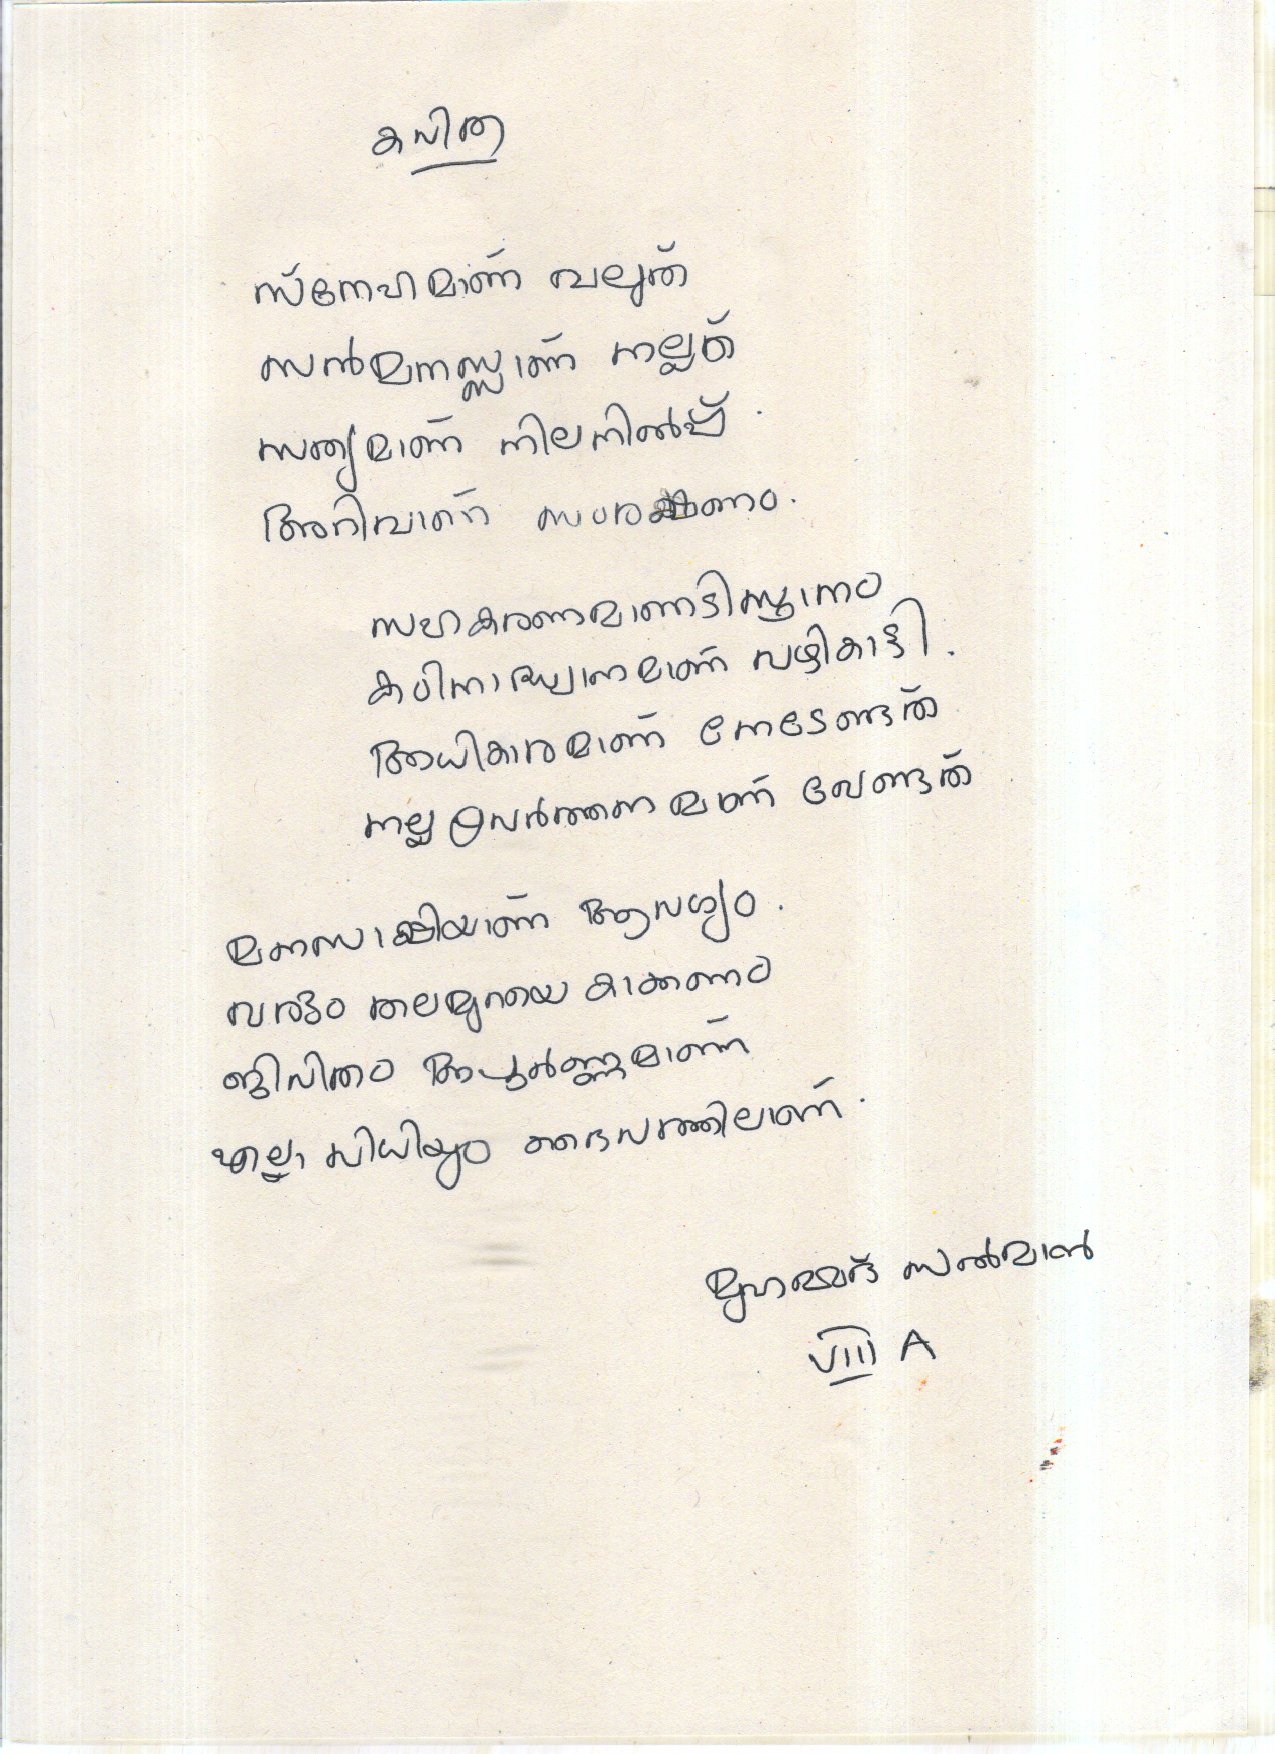 കവിത
സ്നേഹമാണ് വലുത്
സൻമനസ്സാണ് നല്ലത്
സത്യമാണ് നിലനിൽപ്പ്.
അറിവാണ് സംരക്ഷണം.
സഹകരണമാണടിസ്ഥാനം
കഠിനാദ്ധ്വാനമാണ് വഴികാട്ടി.
അധികാരമാണ് നേടേണ്ടത്
നല്ല പ്രവർത്തനമാണ് വേണ്ടത്
മനസാക്ഷിയാണ് ആവശ്യം.
വരും തലമുറയെ കാക്കണം
ജീവിതം അപൂർണ്ണമാണ്
എല്ലാ വിധിയും ദൈവത്തിലാണ്.
മുഹമ്മദ് സൽമാൻ
VIII A